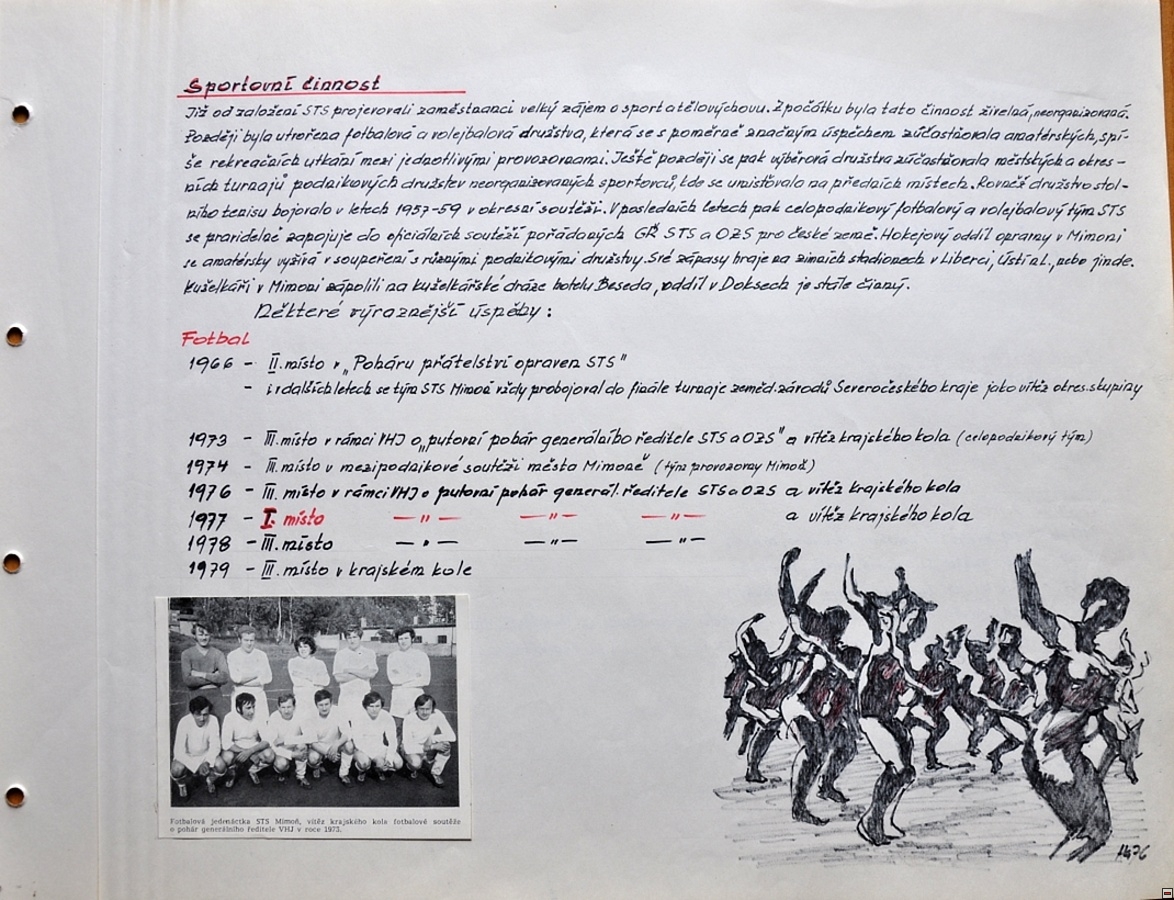 Sportovní činnost
Již od založení STS projevovali zaměstnanci velký zájem o sport a tělovýchovu. Zpočátku byla tato činnost živelná, neorganizovaná.
Později byla utvořena fotbalová a volejbalová družstva, která se s poměrně značným úspěchem zúčastňovala amatérských, spí-
še rekreačních utkání mezi jednotlivými provozovnami. Ještě později se pak výběrová družstva zúčastňovala městských a okres-
ních turnajů podnikových družstev neorganizovaných sportovců, kde se umisťovala na předních místech. Rovněž družstvo stol-
ního tenisu bojovalo v letech 1957-59 v okresní soutěži. V posledních letech pak celopodnikový fotbalový a volejbalový tým STS
se pravidelně zapojuje do oficiálních soutěží pořádaných GŘ STS a OZS pro české země. Hokejový oddíl opravny v Mimoni
se amatérsky vyžívá v soupeření s různými podnikovými družstvy. Své zápasy hraje na zimních stadionech v Liberci, Ústí n.L., nebo jinde.
Kuželkáři v Mimoni zápolili na kuželkářské dráze hotelu Beseda, oddíl v Doksech je stále činný.
Některé výraznější úspěhy:
Fotbal
1966 - II. místo v „Poháru přátelství opraven STS"
- i v dalších letech se tým STS Mimoň vždy probojoval do finále turnaje zeměd. závodů Severočeského kraje jako vítěz okres. skupiny
1973 - III. místo v rámci VHJ o „putovní pohár generálního ředitele STS a OZS" a vítěz krajského kola (celopodnikový tým)
1974 - III. místo v mezipodnikové soutěži města Mimoně (tým provozovny Mimoň)
1976 - III. místo v rámci VHJ o putovní pohár generál. ředitele STS a OZS a vítěz krajského kola
1977 - I. místo — " — — " — — " — a vítěz krajského kola
1978 - III. místo — " — — " — — " —
1979 - III. místo v krajském kole
Fotbalová jedenáctka STS Mimoň, vítěz krajského kola fotbalové soutěže
o pohár generálního ředitele VHJ v roce 1973.